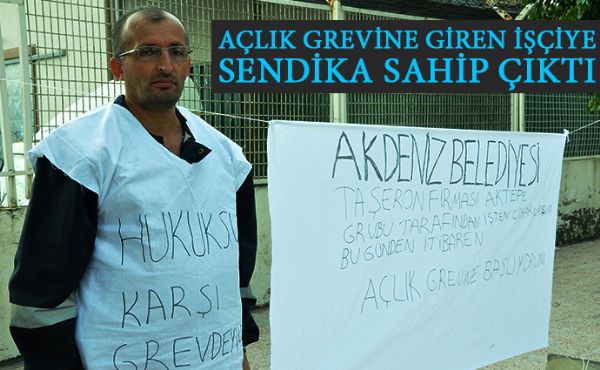 AÇLIK GREVİNE GİREN İŞÇİYE
SENDİKA SAHİP ÇIKTI
HUKUKSU
KARŞI
GREVDEY
AKDENİZ BELEDİYESİ
TAŞERON FİRMASI AKTEPE
GRUBU TARAFINDAN İŞTEN
BU GÜNDEN İTİBAREN
AÇLIK GREVİNE BAŞLIYORUM